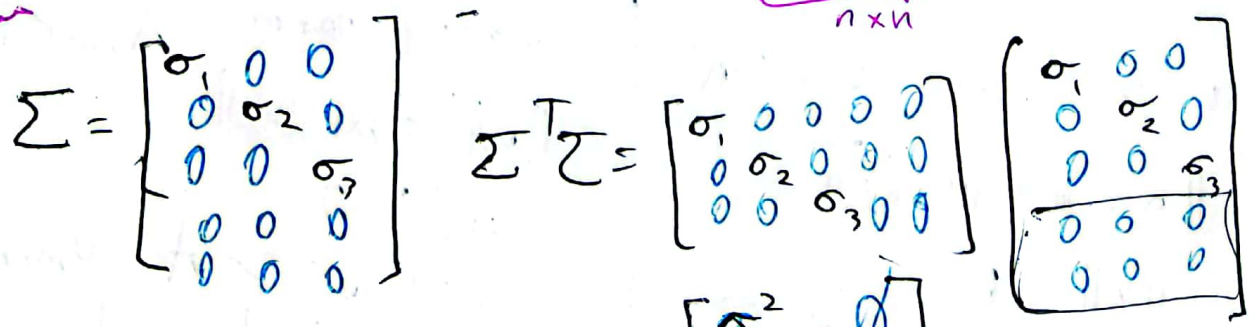 n×n
Σ = [σ₁ 0 0
0 σ₂ 0
0 0 σ₃
0 0 0
0 0 0]
ΣᵀΣ = [σ₁ 0 0 0 0
0 σ₂ 0 0 0
0 0 σ₃ 0 0]
[σ₁ 0 0
0 σ₂ 0
0 0 σ₃
0 0 0
0 0 0]
[σ² 0]